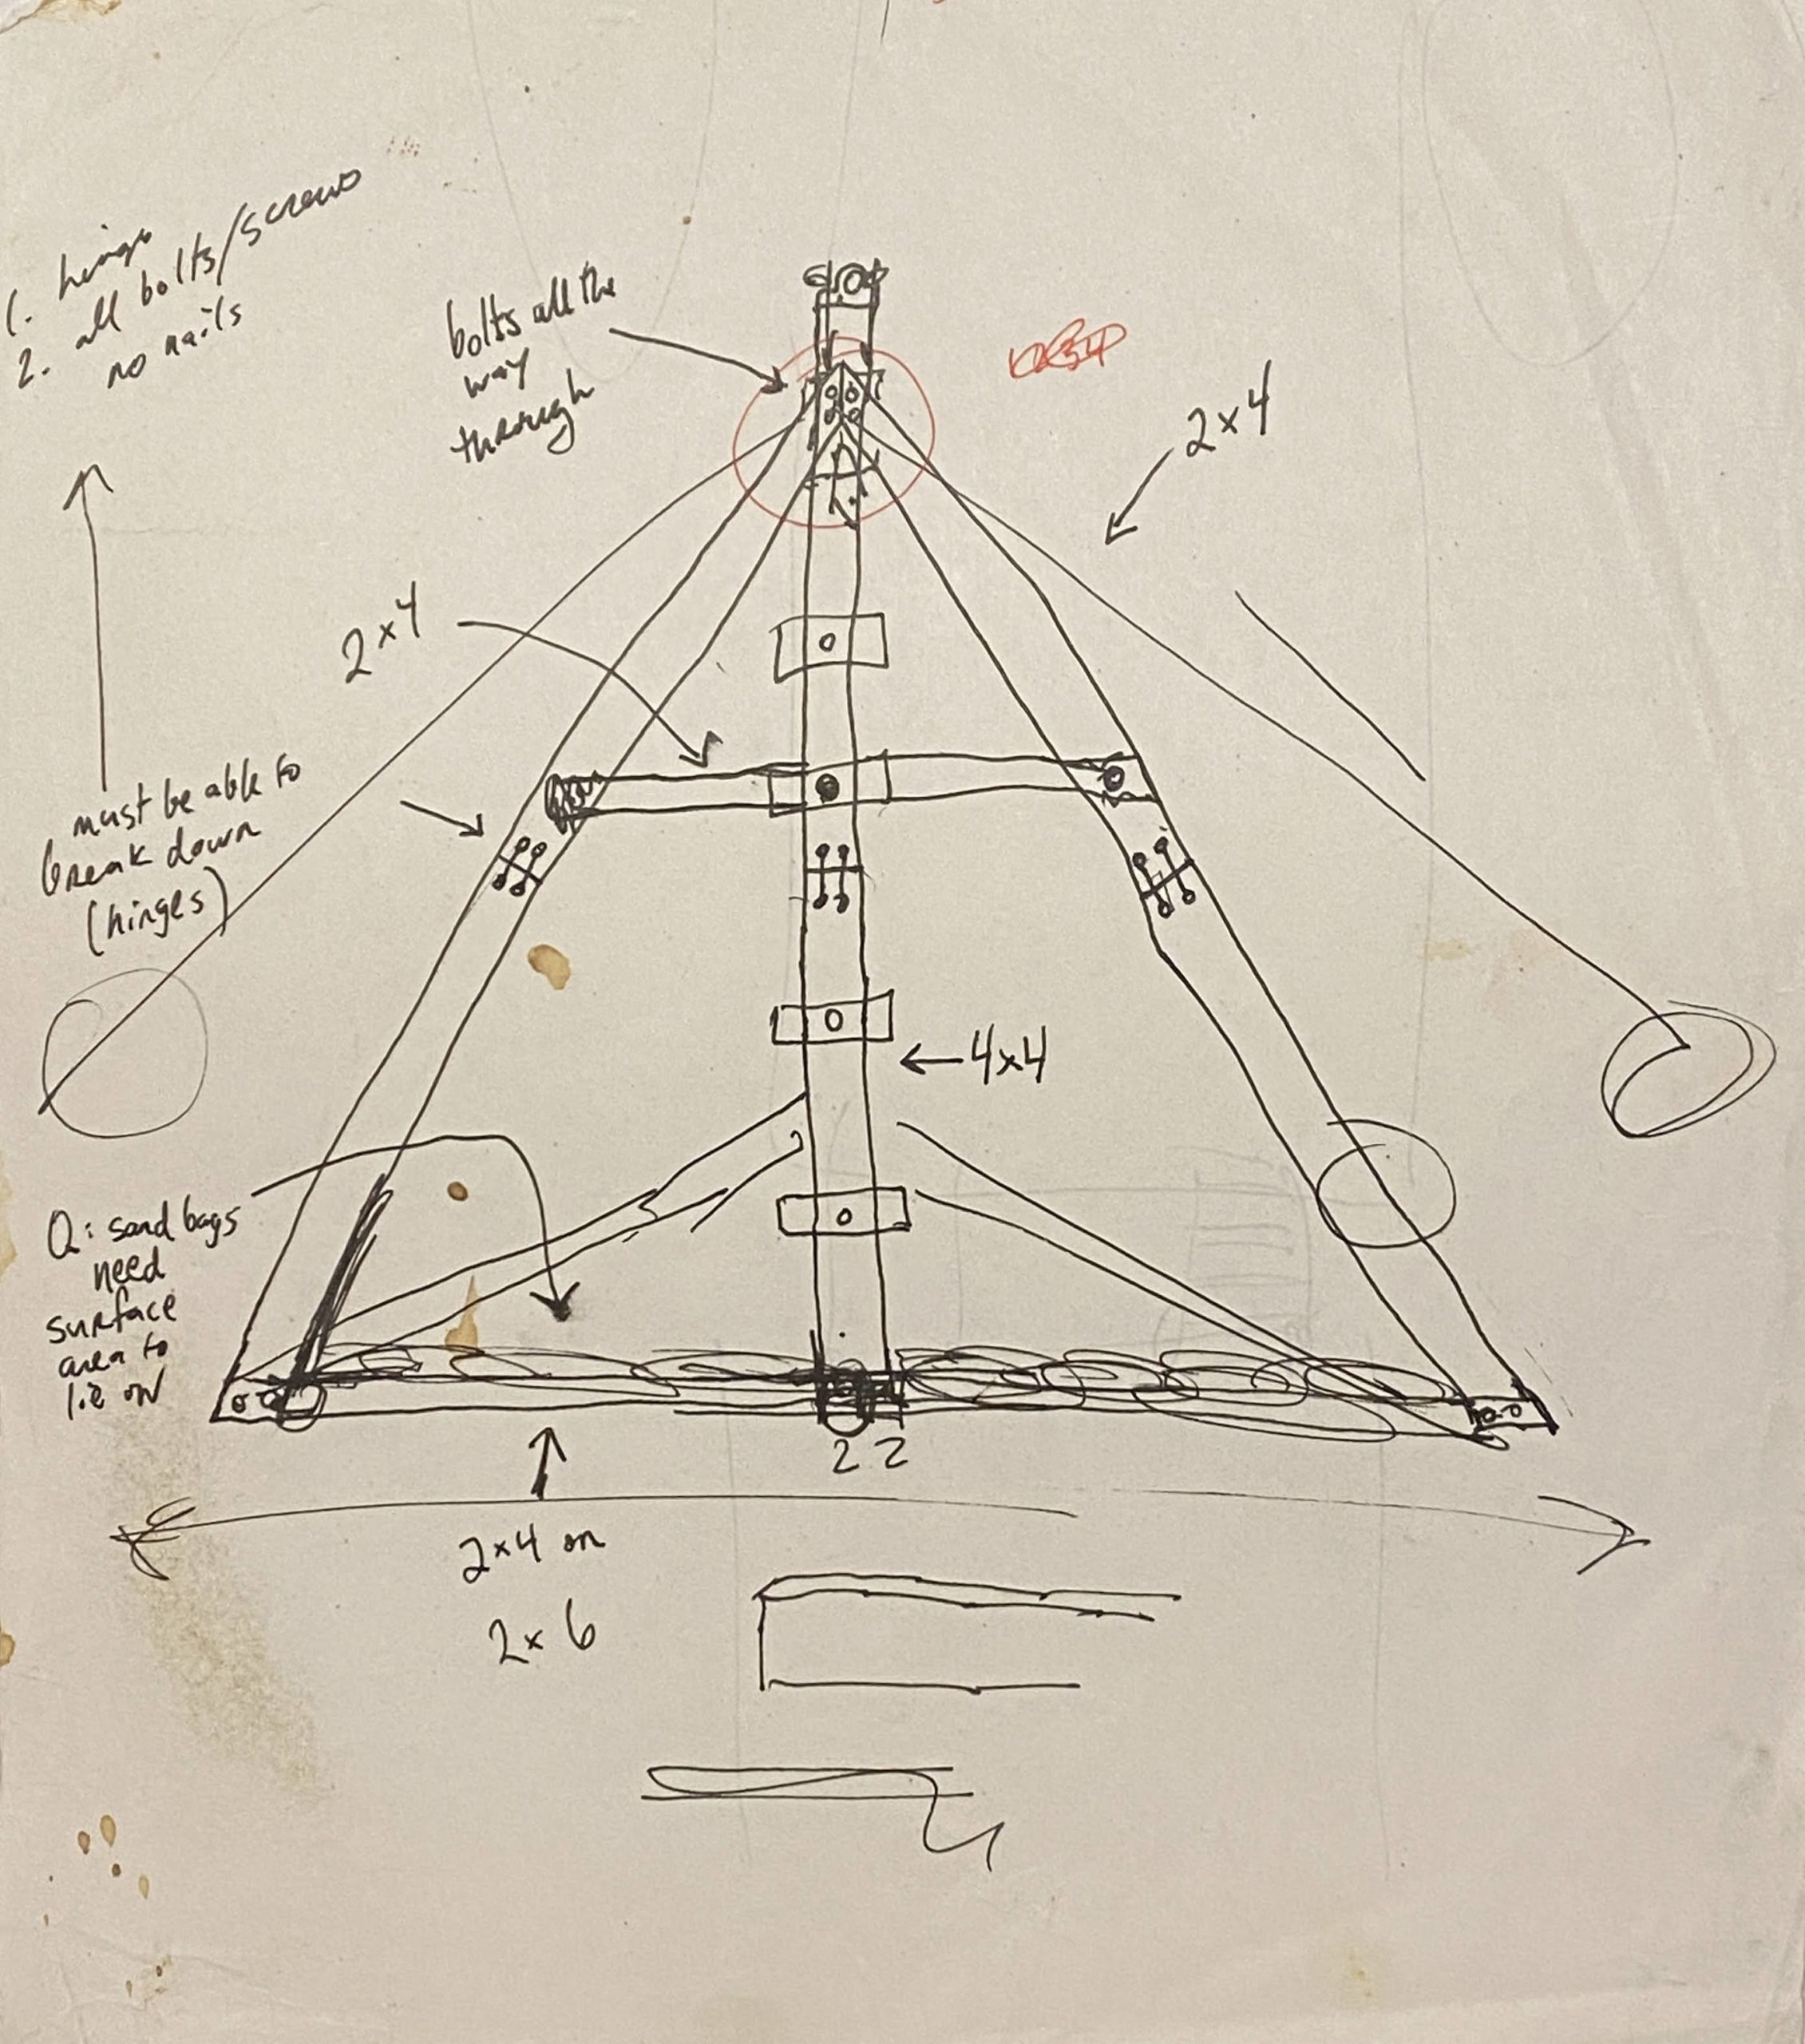 1. hinge
2. all bolts/screws
no nails
bolts all the
way
through
2x4
2x4
must be able to
break down
(hinges)
4x4
Q: sand bags
need
surface
area to
lie on
2 2
2x4 on
2x6